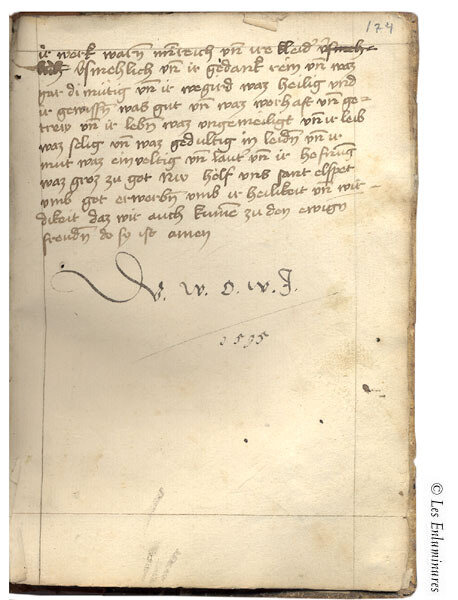 174
ir werk warn
lich v̄smehlich vn̄ ir gedank rein vn̄ waz
gar di mutig vn̄ ir wegird waz heilig vnd
ir gewissn̄ was gut vn̄ waz worhaft vn̄ ge-
trew vn̄ ir lebn̄ waz vngemeiligt vn̄ ir leib
waz selig vn̄ waz gedultig in leidn̄ vn̄ ir
mut waz einveltig vn̄ laut vn̄ ir hofnūg
waz groz zu got Nw helf vns sant elspet
vmb got erwerbn̄ vmb ir heilikeit vn̄ wir-
dikeit daz wir auch kum̄e zu den ewign̄
freudn̄ do so ist amen
W. O. W. J.
1595
© Les Enluminures